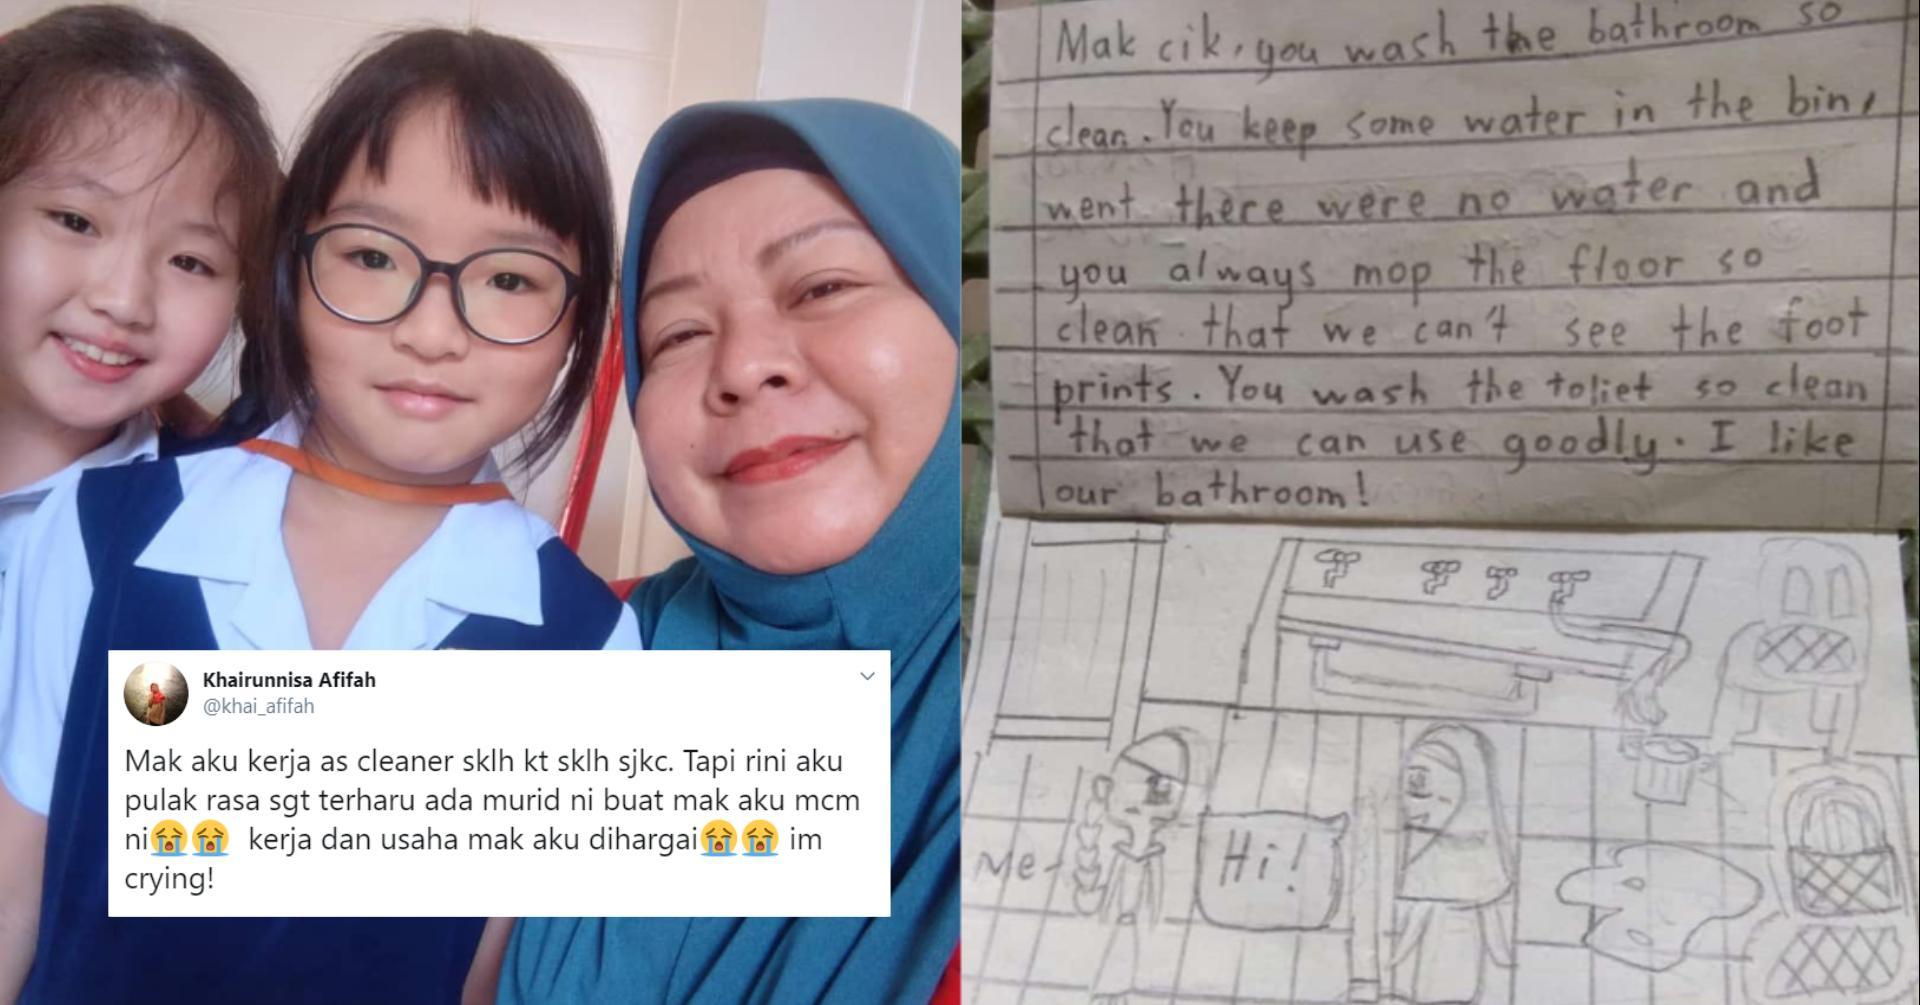 Khairunnisa Afifah
@khai_afifah
Mak aku kerja as cleaner sklh kt sklh sjkc. Tapi rini aku
pulak rasa sgt terharu ada murid ni buat mak aku mcm
ni😭😭 kerja dan usaha mak aku dihargai😭😭 im
crying!
Mak cik, you wash the bathroom so
clean. You keep some water in the bin,
went there were no water and
you always mop the floor so
clean that we can't see the foot
prints. You wash the toliet so clean
that we can use goodly. I like
our bathroom!
Me
Hi!